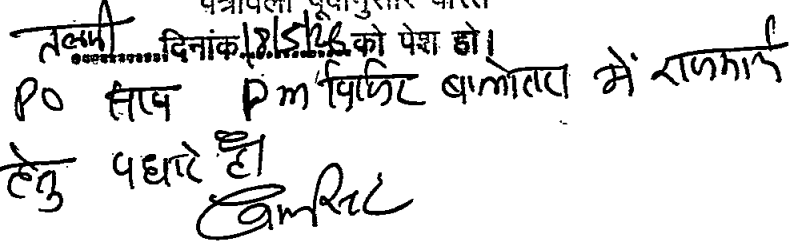 पत्रावली पूर्वानुसार वास्ते
तलबी दिनांक 18/5/26 को पेश हो।
PO साब PM विजिट बालोतरा में राजकार्य
हेतु पधारे है।